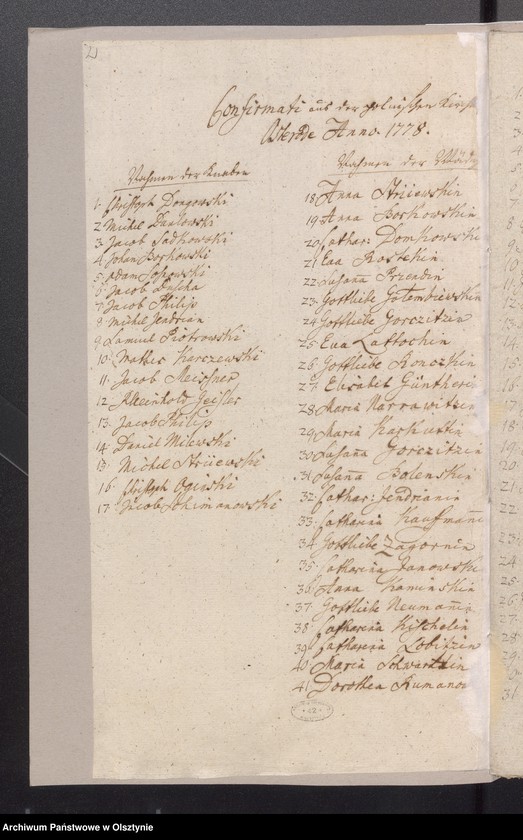 Confirmati aus der polnischen Kirch
Osterode Anno. 1778.
Nahmen der Knaben
1. Christoph Dongowski
2. Michel Danlowski
3. Jacob Sadkowski
4. Johan Borkowski
5. Adam Sossowski
6. Jacob Duscha
7. Jacob Philip
8. Michel Jendrian
9. Samuel Piotrowski
10. Mathes Karczewski
11. Jacob Meissner
12. Reinhold Geisler
13. Jacob Philip
14. Daniel Milewski
15. Michel Striiewski
16. Christoph Ogurski
17. Jacob Schimanowski
Nahmen der Mädg
18. Anna Striiewskin
19. Anna Borkowskin
20. Cathar: Domkowski
21. Eva Kostkin
22. Susanna Przeadin
23. Gottliebe Golembiewskin
24. Gottliebe Gorczitzin
25. Eva Lattochin
26. Gottliebe Konczkin
27. Elisabet Güntheri
28. Maria Narrawitzin
29. Maria Karkuttin
30. Susanna Gorczitzin
31. Susanna Balenskin
32. Cathar: Jendrianin
33. Catharina Kauffmann
34. Gottliebe Zagornin
35. Catharina Janowski
36. Anna Kaminskin
37. Gottliebe Neumannin
38. Catharina Kischelin
39. Catharina Lobitzin
40. Maria Schwartzin
41. Dorothea Rumanow
Archiwum Państwowe w Olsztynie